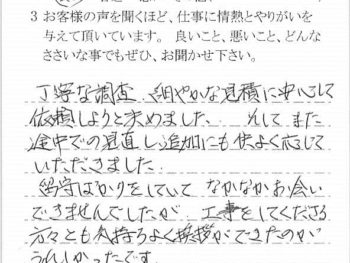 3 お客様の声を聞くほど、仕事に情熱とやりがいを
与えて頂いています。良いこと、悪いこと、どんな
ささいな事でもぜひ、お聞かせ下さい。
丁寧な調査、細やかな見積に
依頼しようと決めました。そして また
途中での見直し追加にも快よく応じて
いただきました。
留守ばかりをしていて なかなかお会い
できませんでしたが 工事をしてくださる
方々とも気持ちよく挨拶ができたのが
うれしかったです。